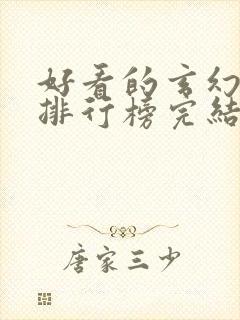 好看的玄幻
排行榜完結
唐家三少